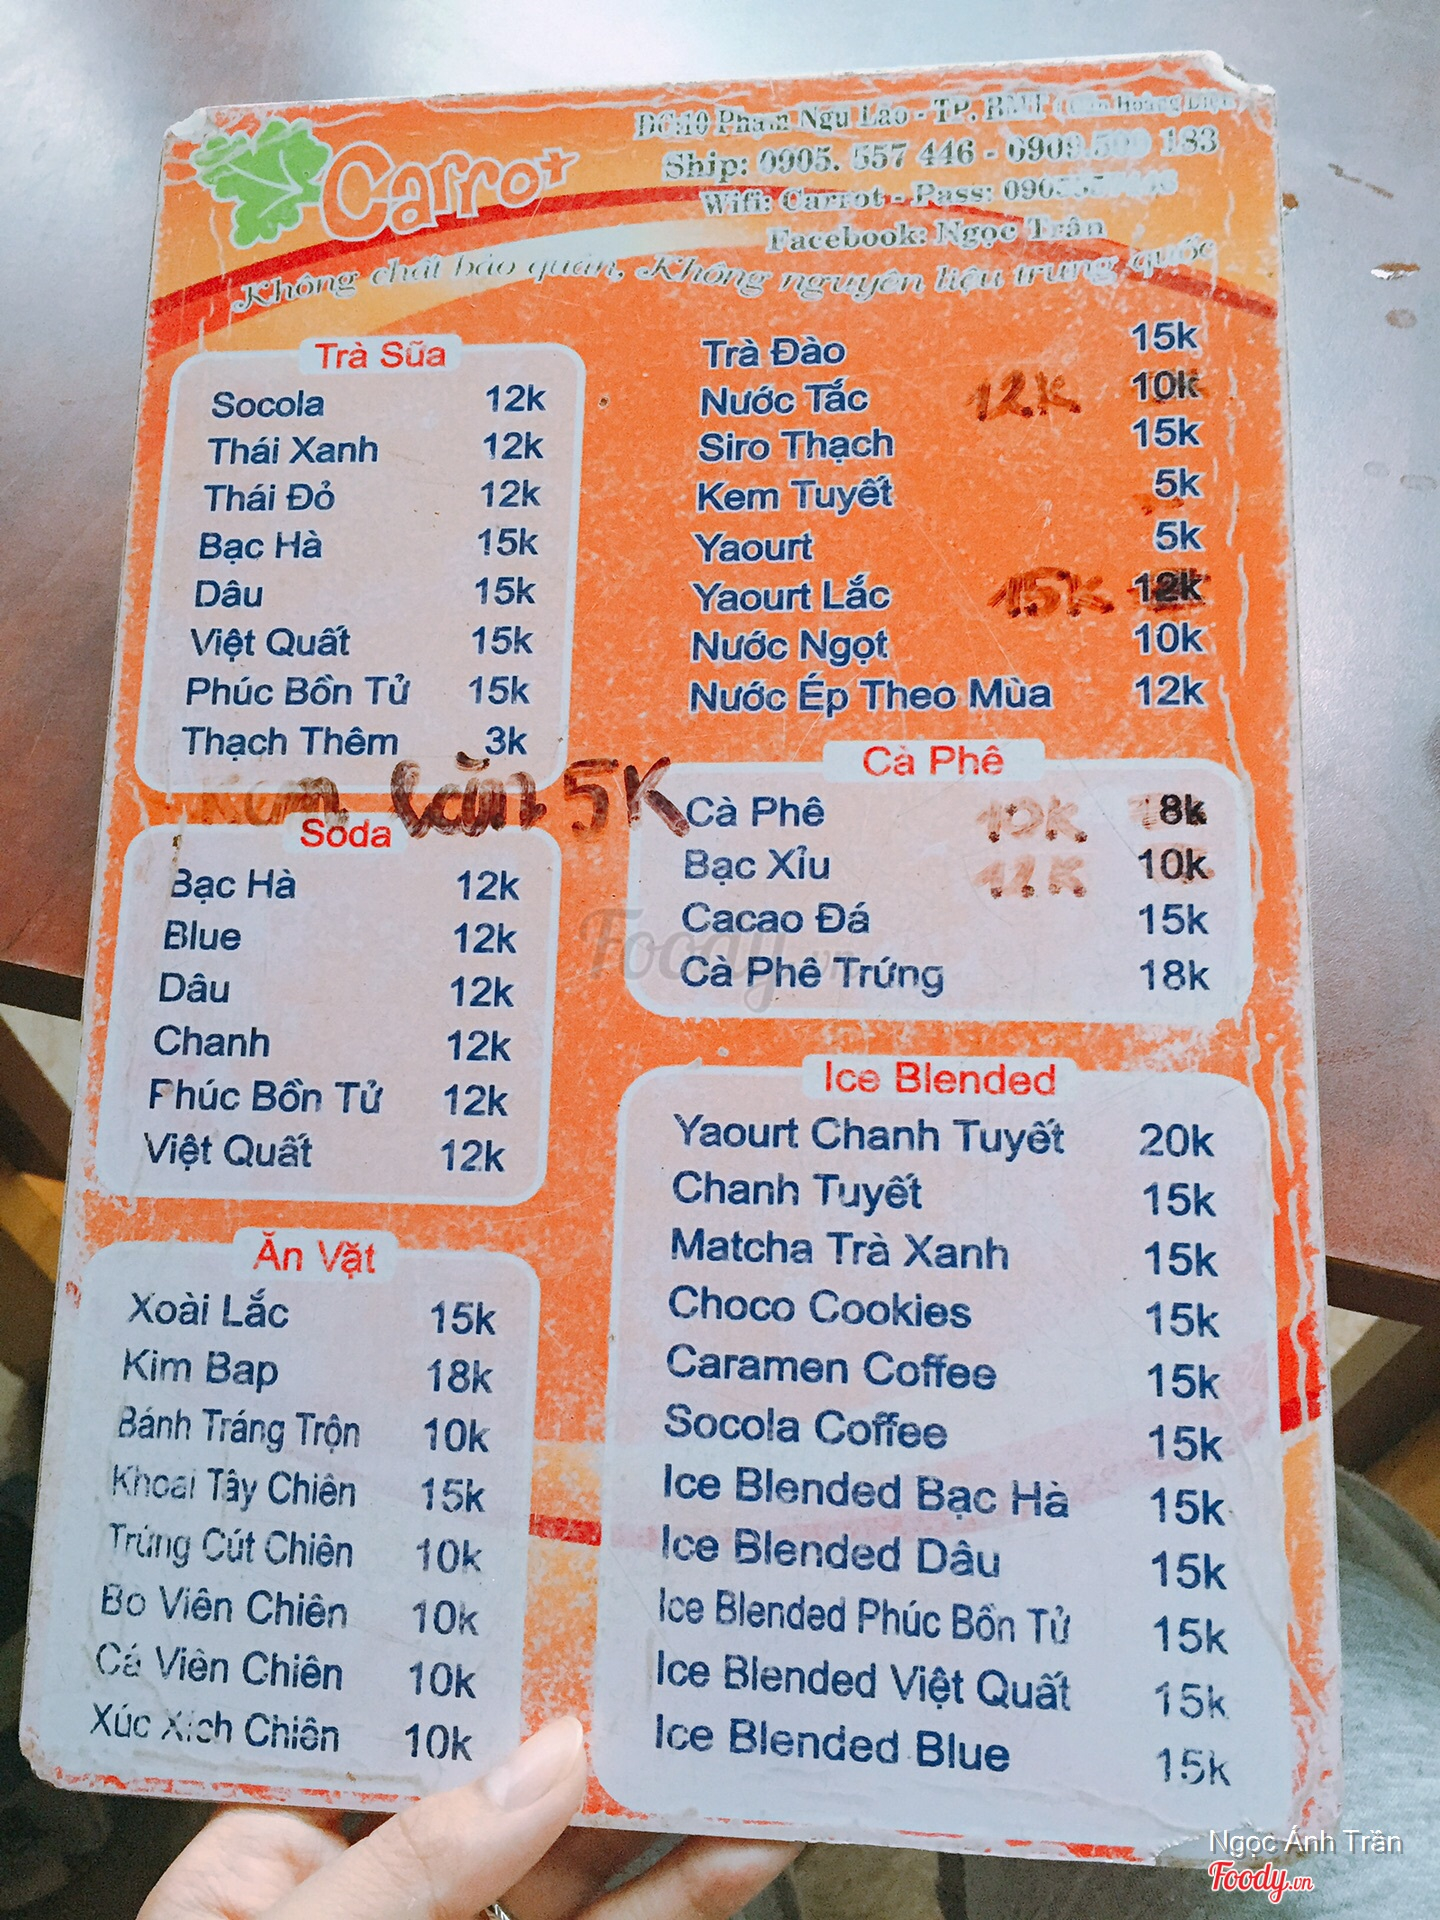 Carrot
ĐC:10 Phạm Ngũ Lão - TP. BMT
Ship: 0905. 557 446 - 0909.599 183
Wifi: Carrot - Pass:
Facebook: Ngọc Trân
Không chất bảo quản, Không nguyên liệu trung quốc
Trà Sữa
Socola 12k
Thái Xanh 12k
Thái Đỏ 12k
Bạc Hà 15k
Dâu 15k
Việt Quất 15k
Phúc Bồn Tử 15k
Thạch Thêm 3k
5K
Soda
Bạc Hà 12k
Blue 12k
Dâu 12k
Chanh 12k
Phúc Bồn Tử 12k
Việt Quất 12k
Ăn Vặt
Xoài Lắc 15k
Kim Bap 18k
Bánh Tráng Trộn 10k
Khoai Tây Chiên 15k
Trứng Cút Chiên 10k
Bò Viên Chiên 10k
Cá Viên Chiên 10k
Xúc Xích Chiên 10k
Trà Đào 15k
Nước Tắc 12K 10k
Siro Thạch 15k
Kem Tuyết 5k
Yaourt 5k
Yaourt Lắc 15K 12k
Nước Ngọt 10k
Nước Ép Theo Mùa 12k
Cà Phê
Cà Phê 10K 8k
Bạc Xỉu 12K 10k
Cacao Đá 15k
Cà Phê Trứng 18k
Ice Blended
Yaourt Chanh Tuyết 20k
Chanh Tuyết 15k
Matcha Trà Xanh 15k
Choco Cookies 15k
Caramen Coffee 15k
Socola Coffee 15k
Ice Blended Bạc Hà 15k
Ice Blended Dâu 15k
Ice Blended Phúc Bồn Tử 15k
Ice Blended Việt Quất 15k
Ice Blended Blue 15k
Foody.vn
Ngọc Ánh Trần
Foody.vn